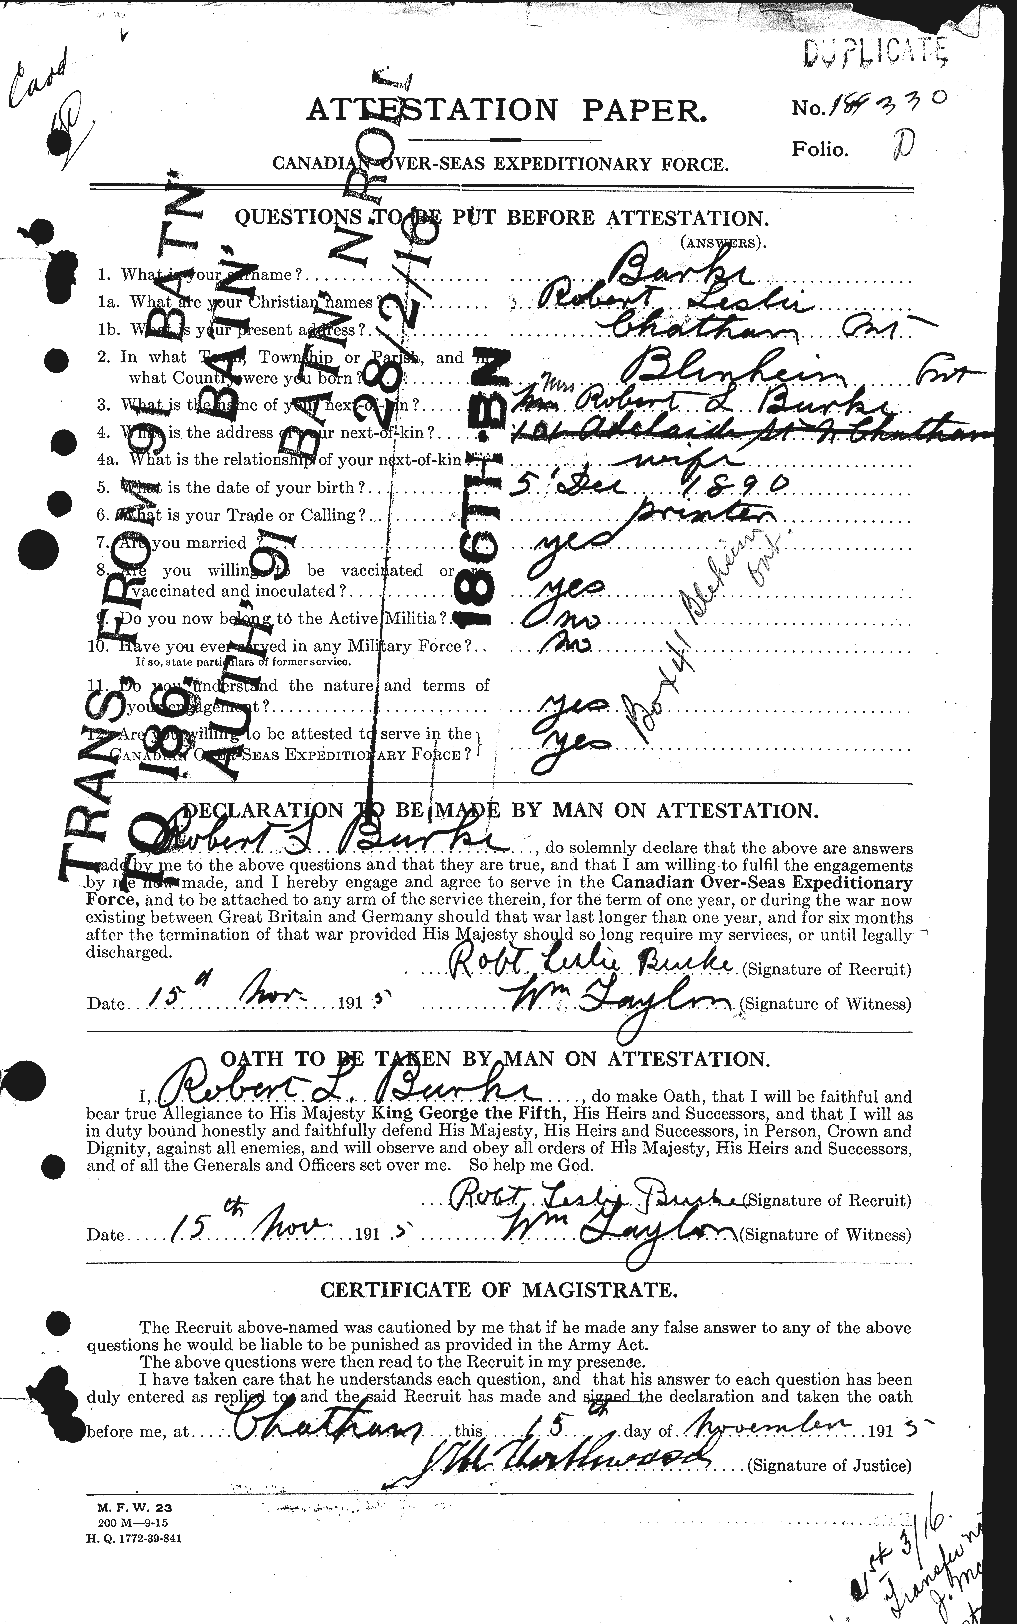 Card
DUPLICATE
ATTESTATION PAPER.
No. 189330
Folio. D
CANADIAN OVER-SEAS EXPEDITIONARY FORCE.
QUESTIONS TO BE PUT BEFORE ATTESTATION.
(ANSWERS).
1. What is your surname? Burke
1a. What are your Christian names? Robert Leslie
1b. What is your present address? Chatham Ont
2. In what Town, Township or Parish, and in
what Country were you born? Blenheim Ont
3. What is the name of your next-of-kin? Mrs Robert L Burke
4. What is the address of your next-of-kin? 101 Adelaide St N Chatham
4a. What is the relationship of your next-of-kin wife
5. What is the date of your birth? 5 Dec 1890
6. What is your Trade or Calling? printer
7. Are you married? yes
8. Are you willing to be vaccinated or re-
vaccinated and inoculated? yes
9. Do you now belong to the Active Militia? no
10. Have you ever served in any Military Force? no
If so, state particulars of former service.
11. Do you understand the nature and terms of
your engagement? yes
12. Are you willing to be attested to serve in the
CANADIAN OVER-SEAS EXPEDITIONARY FORCE? yes
Box 41 Blenheim
Ont.
TRANS, FROM 91 BATN'
TO 186, BATN'
AUTH, 91 BATN' N ROLL
28/2/16
186TH.BN
DECLARATION TO BE MADE BY MAN ON ATTESTATION.
Robert L Burke, do solemnly declare that the above are answers
made by me to the above questions and that they are true, and that I am willing to fulfil the engagements
by me now made, and I hereby engage and agree to serve in the Canadian Over-Seas Expeditionary
Force, and to be attached to any arm of the service therein, for the term of one year, or during the war now
existing between Great Britain and Germany should that war last longer than one year, and for six months
after the termination of that war provided His Majesty should so long require my services, or until legally
discharged.
Robt Leslie Burke (Signature of Recruit)
Date 15th Nov. 1915 Wm Taylor (Signature of Witness)
OATH TO BE TAKEN BY MAN ON ATTESTATION.
I, Robert L. Burke, do make Oath, that I will be faithful and
bear true Allegiance to His Majesty King George the Fifth, His Heirs and Successors, and that I will as
in duty bound honestly and faithfully defend His Majesty, His Heirs and Successors, in Person, Crown and
Dignity, against all enemies, and will observe and obey all orders of His Majesty, His Heirs and Successors,
and of all the Generals and Officers set over me. So help me God.
Robt Leslie Burke (Signature of Recruit)
Date 15th Nov. 1915 Wm Taylor (Signature of Witness)
CERTIFICATE OF MAGISTRATE.
The Recruit above-named was cautioned by me that if he made any false answer to any of the above
questions he would be liable to be punished as provided in the Army Act.
The above questions were then read to the Recruit in my presence.
I have taken care that he understands each question, and that his answer to each question has been
duly entered as replied to, and the said Recruit has made and signed the declaration and taken the oath
before me, at Chatham this 15th day of November 1915
Northwood (Signature of Justice)
M. F. W. 23
200 M—9-15
H. Q. 1772-39-841
3/16